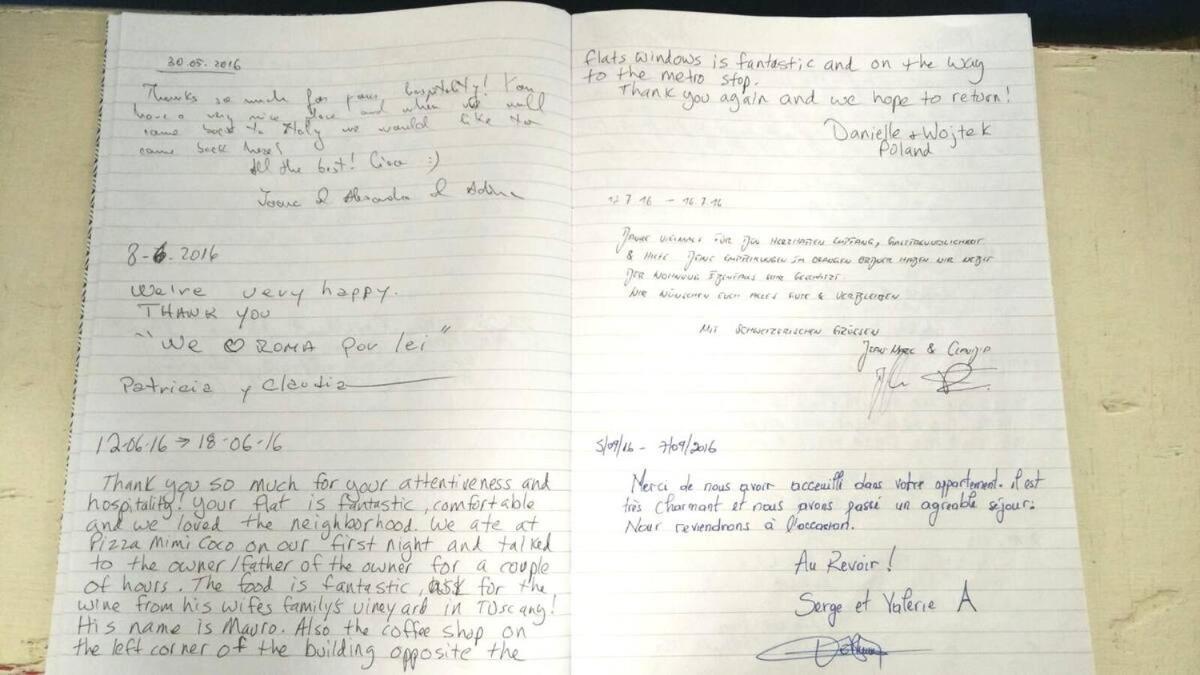 30.05.2016
Thanks so much for your hospitality! You
have a very nice place and when we will
come back to Italy we would like to
come back here!
All the best! Ciao :)
Ioana & Alexandra & Adina
8-6.2016
We're very happy.
THANK YOU
"We ♡ ROMA por lei"
Patricia y Claudia
12-06-16 → 18-06-16
Thank you so much for your attentiveness and
hospitality! Your flat is fantastic, comfortable
and we loved the neighborhood. We ate at
Pizza Mimi Coco on our first night and talked
to the owner/father of the owner for a couple
of hours. The food is fantastic, ask for the
wine from his wifes family's vineyard in Tuscany!
His name is Mauro. Also the coffee shop on
the left corner of the building opposite the
flats windows is fantastic and on the way
to the metro stop.
Thank you again and we hope to return!
Danielle + Wojtek
Poland
12.7.16 - 16.7.16
DANKE VIELMALS FÜR DEN HERZHAFTEN EMPFANG, GASTFREUNDLICHKEIT
& HILFE. DEINE EMPFEHLUNGEN IM ORANGEN ORDNER HABEN WIR NEBST
DER WOHNUNG SEHR GESCHÄTZT.
WIR WÜNSCHEN EUCH ALLES GUTE &
MIT SCHWEIZERISCHEN GRÜSSEN
JEAN-MARC & CLAUDIA
5/09/16 - 7/09/2016
Merci de nous avoir acceuilli dans votre appartement. il est
très charmant et nous avons passé un agréable séjour.
Nous reviendrons à l'occasion.
Au Revoir!
Serge et Valerie A